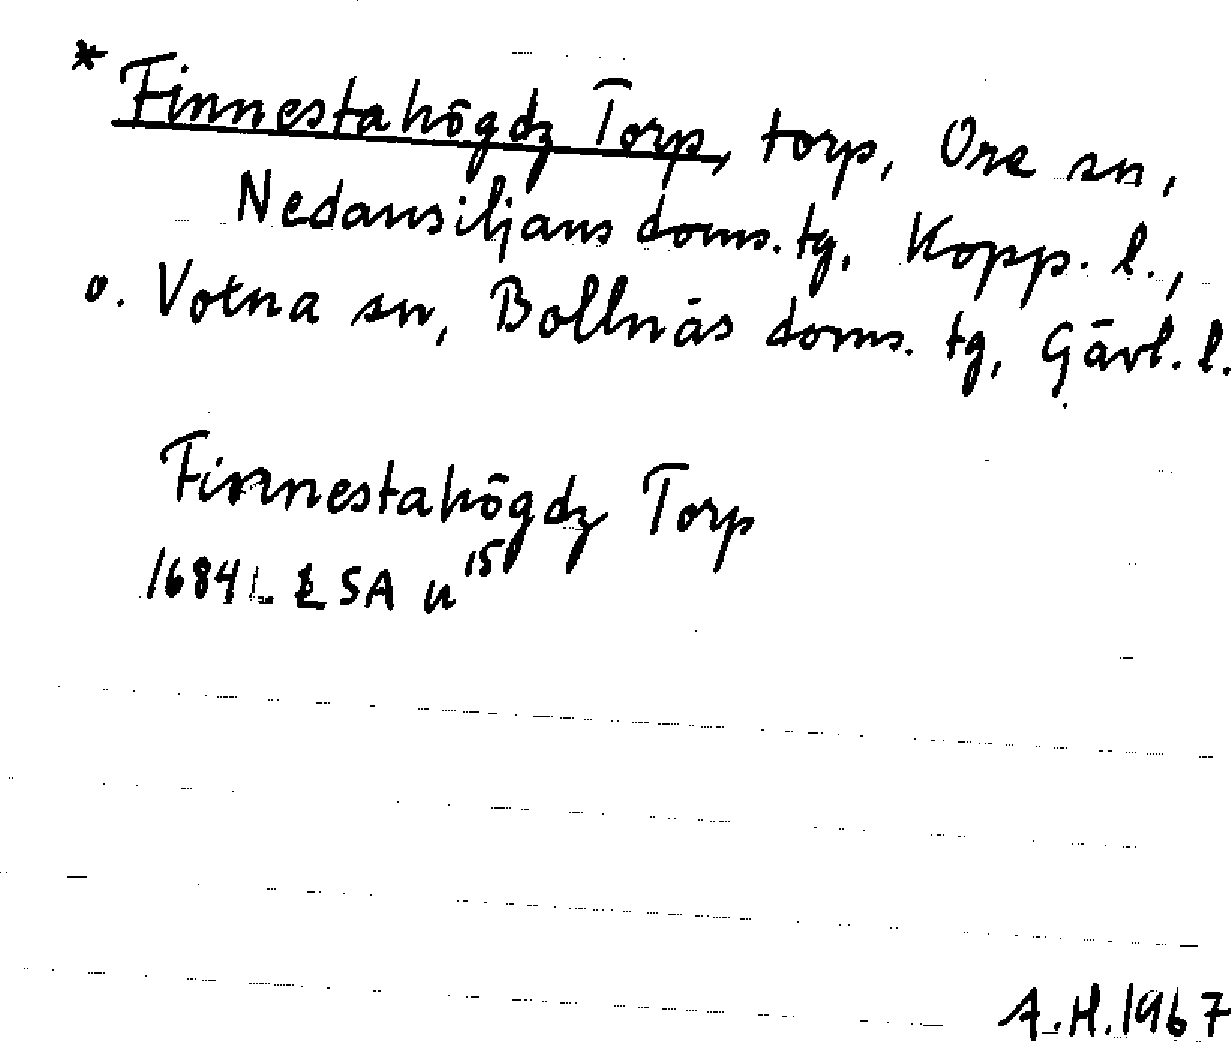 * Finnestahögdz Torp, torp, Ore sn,
Nedansiljans doms.tg, Kopp. l.,
o. Votna sn, Bollnäs doms. tg, Gävl. l.
Finnestahögdz Torp
1684 L ŁSA u 15
A.H.1967